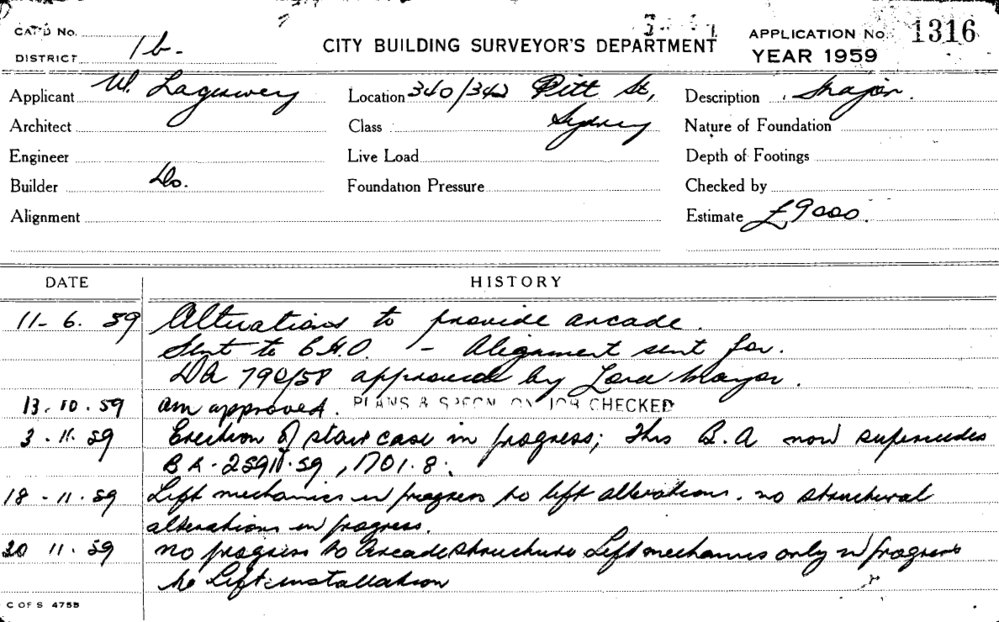 CARD No.
DISTRICT 1b-
CITY BUILDING SURVEYOR'S DEPARTMENT
APPLICATION No. 1316
YEAR 1959
Applicant W.
Location 340/342 Pitt St,
Sydney
Description Major.
Architect
Class
Nature of Foundation
Engineer
Live Load
Depth of Footings
Builder Do.
Foundation Pressure
Checked by
Alignment
Estimate £9000.
DATE
HISTORY
11-6.59 Alterations to provide arcade.
Sent to C.H.O. - Alignment sent for.
DA 790/58 approved by Lord Mayor.
13.10.59 am approved. PLANS & SPECN. ON JOB CHECKED
3.11.59 Erection of stair case in progress; This B.A now supersedes
B A. 1701.8.
18-11.59 Lift mechanics in progress to lift alterations. no structural
alterations in progress.
20 11.59 no progress to Arcade structure Lift mechanics only in progress
to Lift installation
C OF S 4755